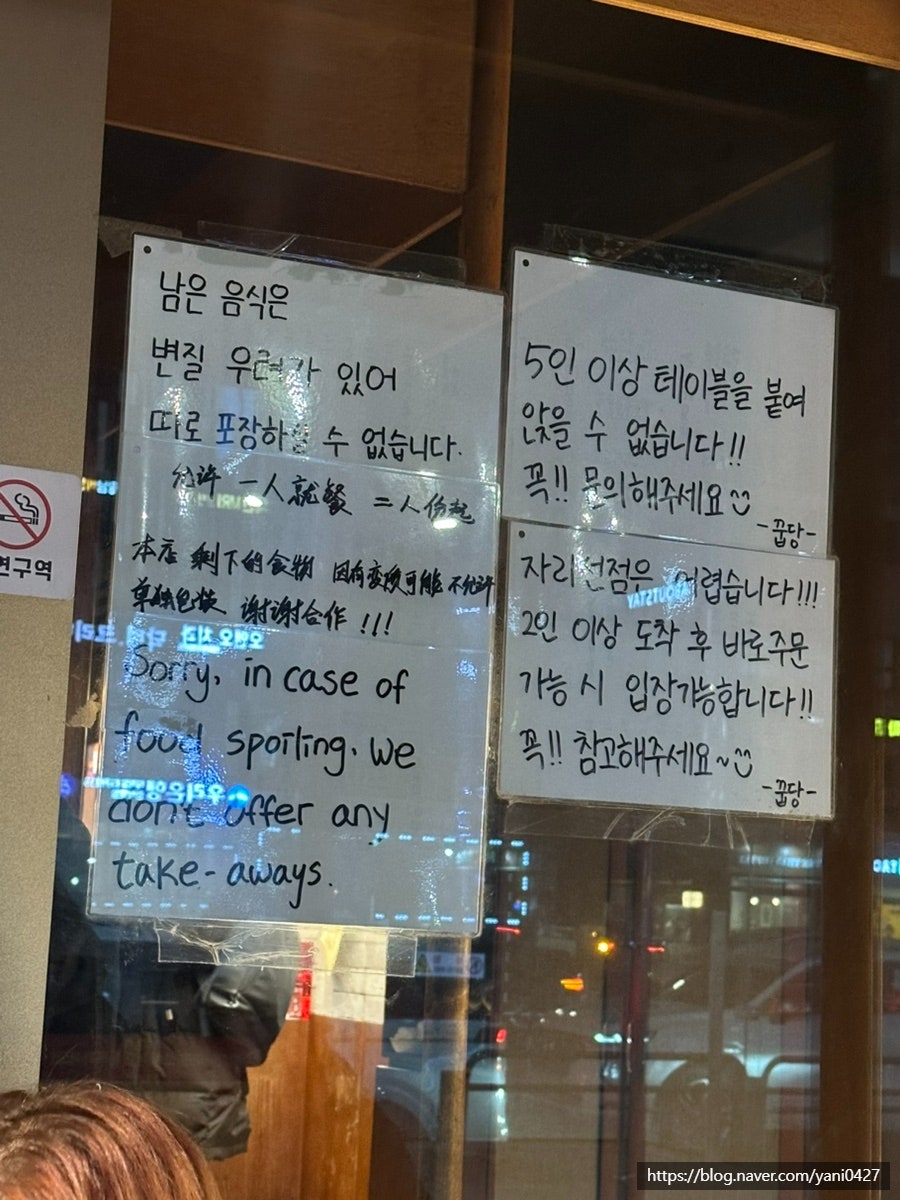 남은 음식은
변질 우려가 있어
따로 포장하실 수 없습니다.
允许 一人就餐 二人份起
本店 剩下的食物 因有变质可能 不允许
单独包装 谢谢合作 !!!
Sorry, in case of
food spoiling. we
don't offer any
take-aways.
5인 이상 테이블을 붙여
앉을 수 없습니다!!
꼭!! 문의해주세요
-꿉당-
자리선점은 어렵습니다!!!
2인 이상 도착 후 바로주문
가능 시 입장가능합니다!!
꼭!! 참고해주세요~
-꿉당-
연구역
ABOUTSTAY
https://blog.naver.com/yani0427